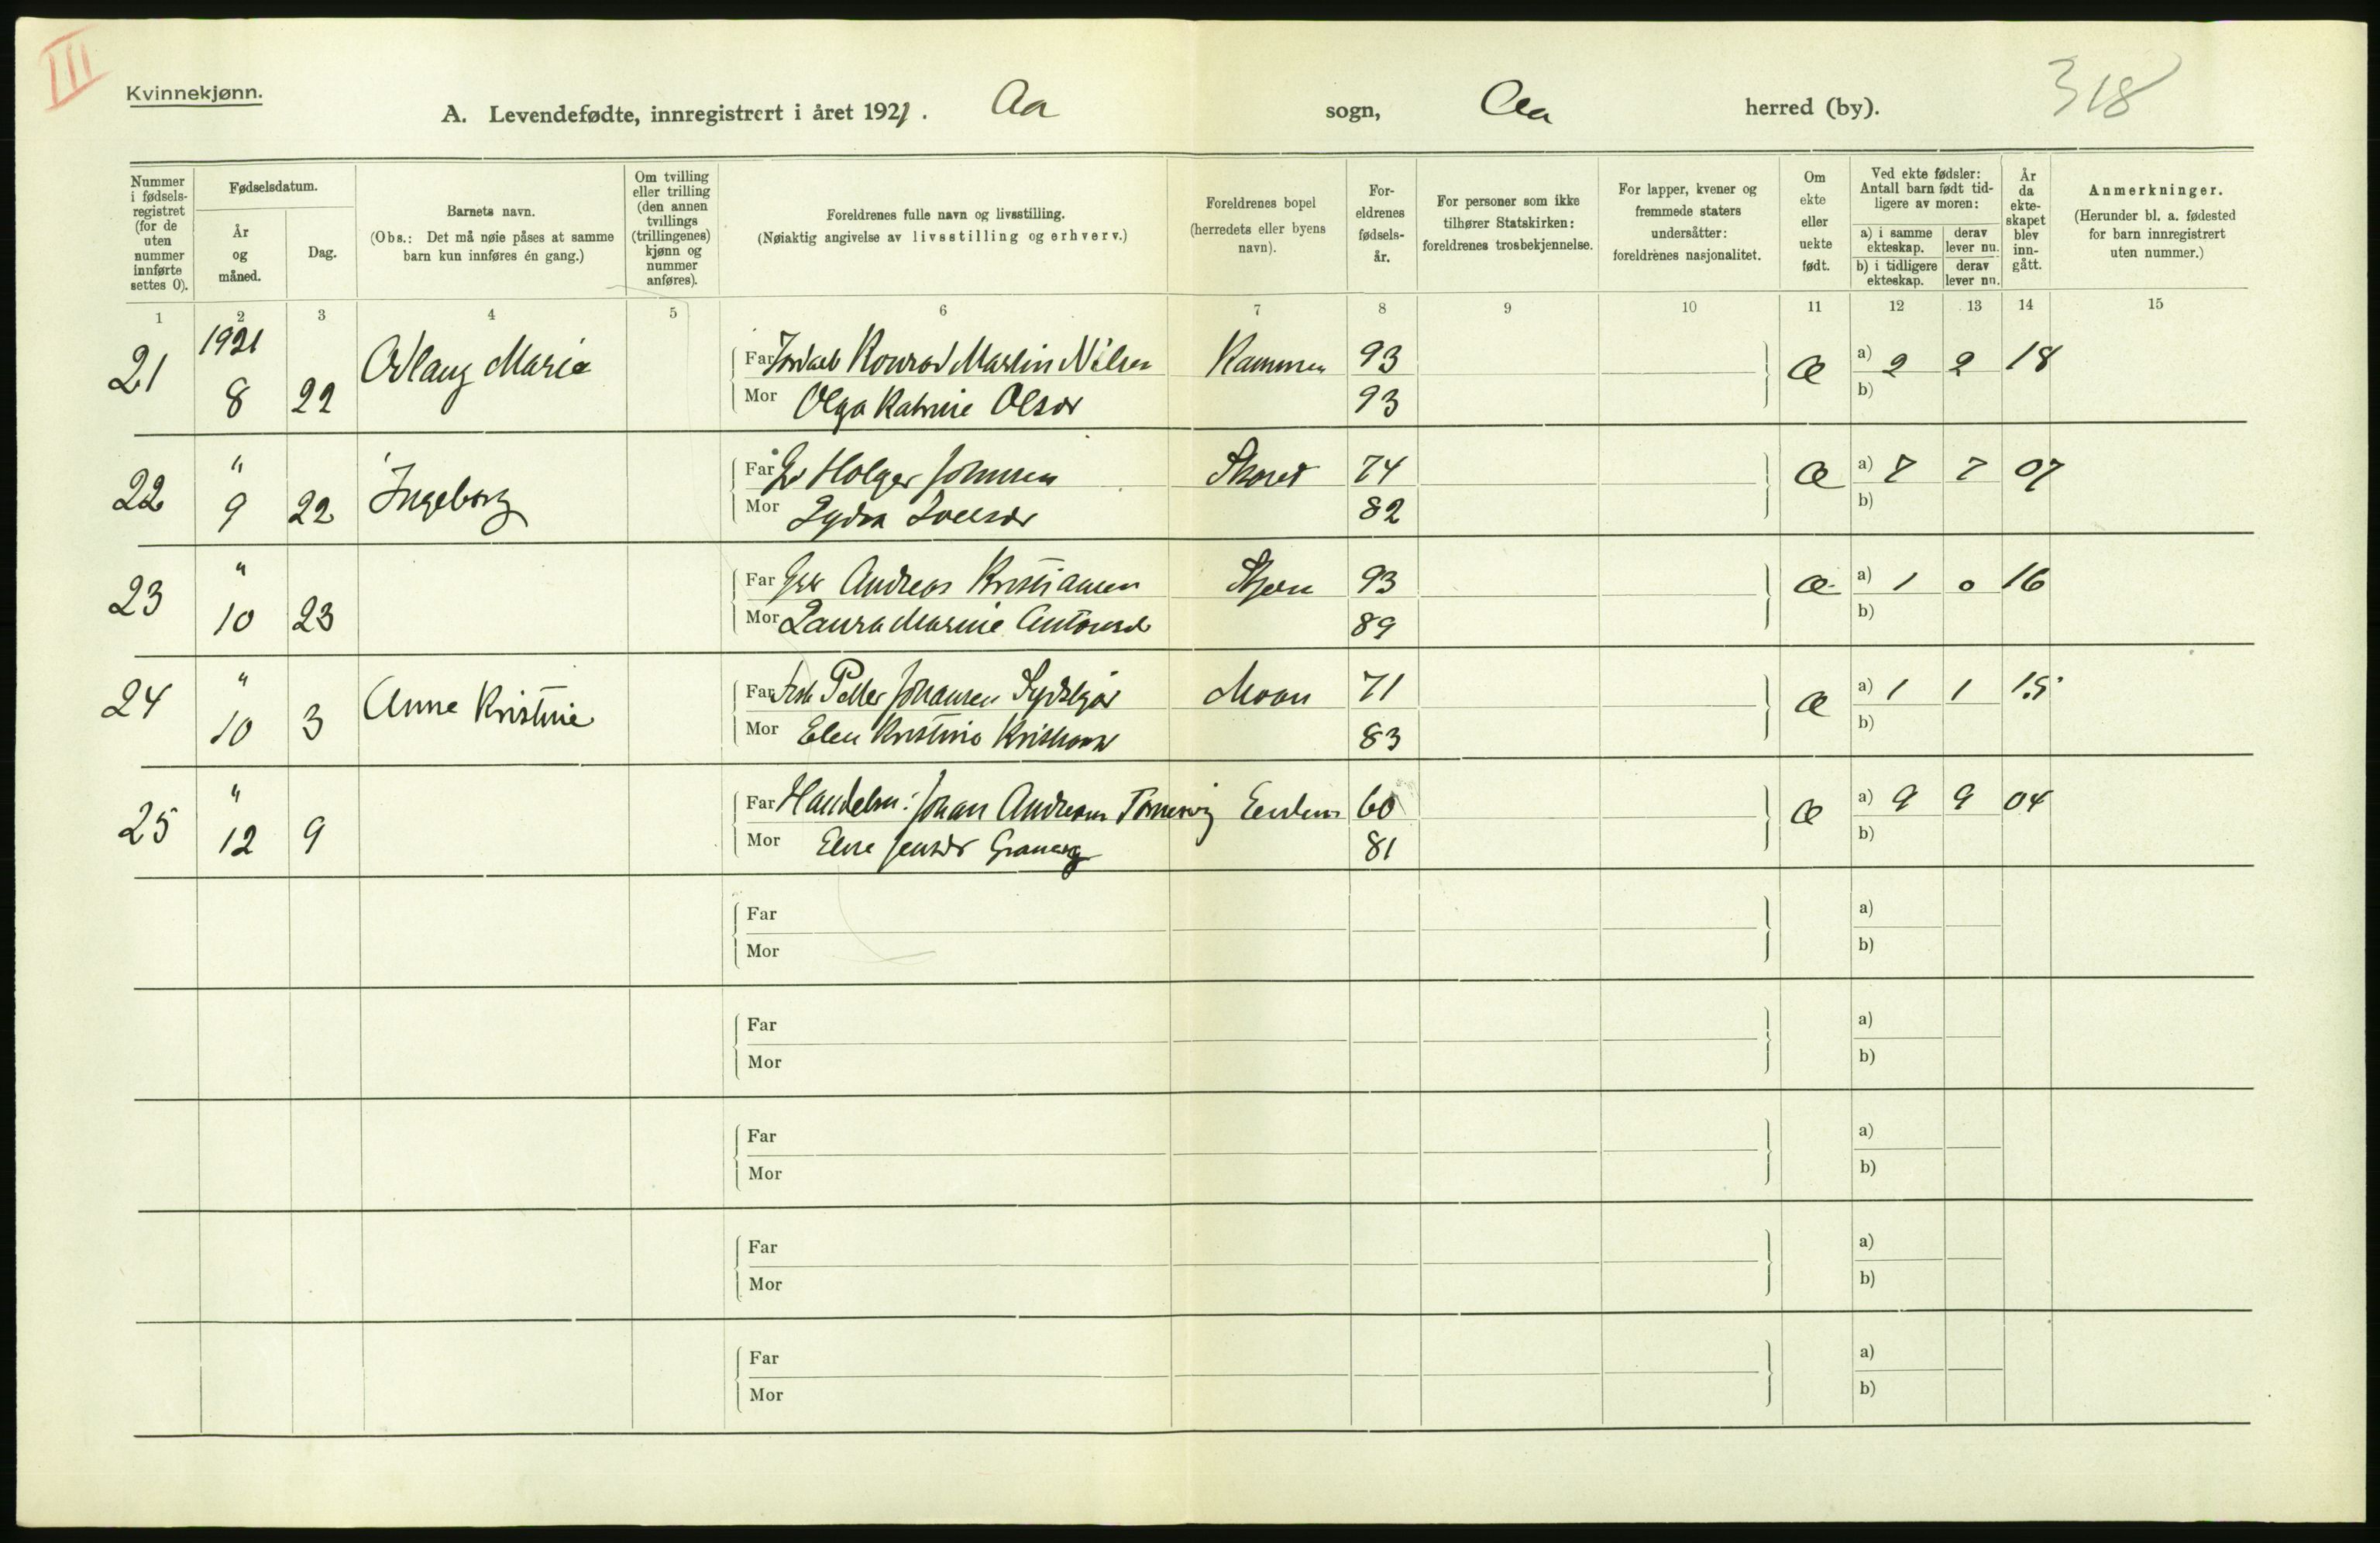 III
Kvinnekjønn.
318
A. Levendefødte, innregistrert i året 1921. Aa sogn, Aa herred (by).
Nummer i fødselsregistret (for de uten nummer innførte settes 0).
Fødselsdatum.
År og måned.
Dag.
Barnets navn.
(Obs.: Det må nøie påses at samme barn kun innføres én gang.)
Om tvilling eller trilling (den annen tvillings (trillingenes) kjønn og nummer anføres).
Foreldrenes fulle navn og livsstilling.
(Nøiaktig angivelse av livsstilling og erhverv.)
Foreldrenes bopel
(herredets eller byens navn).
Foreldrenes fødselsår.
For personer som ikke tilhører Statskirken: foreldrenes trosbekjennelse.
For lapper, kvener og fremmede staters undersåtter: foreldrenes nasjonalitet.
Om ekte eller uekte født.
Ved ekte fødsler: Antall barn født tidligere av moren:
a) i samme ekteskap. derav lever nu.
b) i tidligere ekteskap. derav lever nu.
År da ekteskapet blev inngått.
Anmerkninger.
(Herunder bl. a. fødested for barn innregistrert uten nummer.)
1 2 3 4 5 6 7 8 9 10 11 12 13 14 15
21 1921 8 22 Odlaug Marie Far Konrad Martin Nilsen 93 Æ a) 2 2 18
Mor Olga Katrine Olsdr 93 b)
22 " 9 22 Ingeborg Far Holger Johnsen 74 Æ a) 7 7 07
Mor Lydia 82 b)
23 " 10 23 Far Andreas Kristiansen 93 Æ a) 1 0 16
Mor Laura Marie 89 b)
24 " 10 3 Anne Kristine Far Petter Johansen Moan 71 Æ a) 1 1 15
Mor Elen Kristine 83 b)
25 " 12 9 Far Handelsm: Johan 60 Æ a) 9 9 04
Mor Jensdr 81 b)
Far a)
Mor b)
Far a)
Mor b)
Far a)
Mor b)
Far a)
Mor b)
Far a)
Mor b)